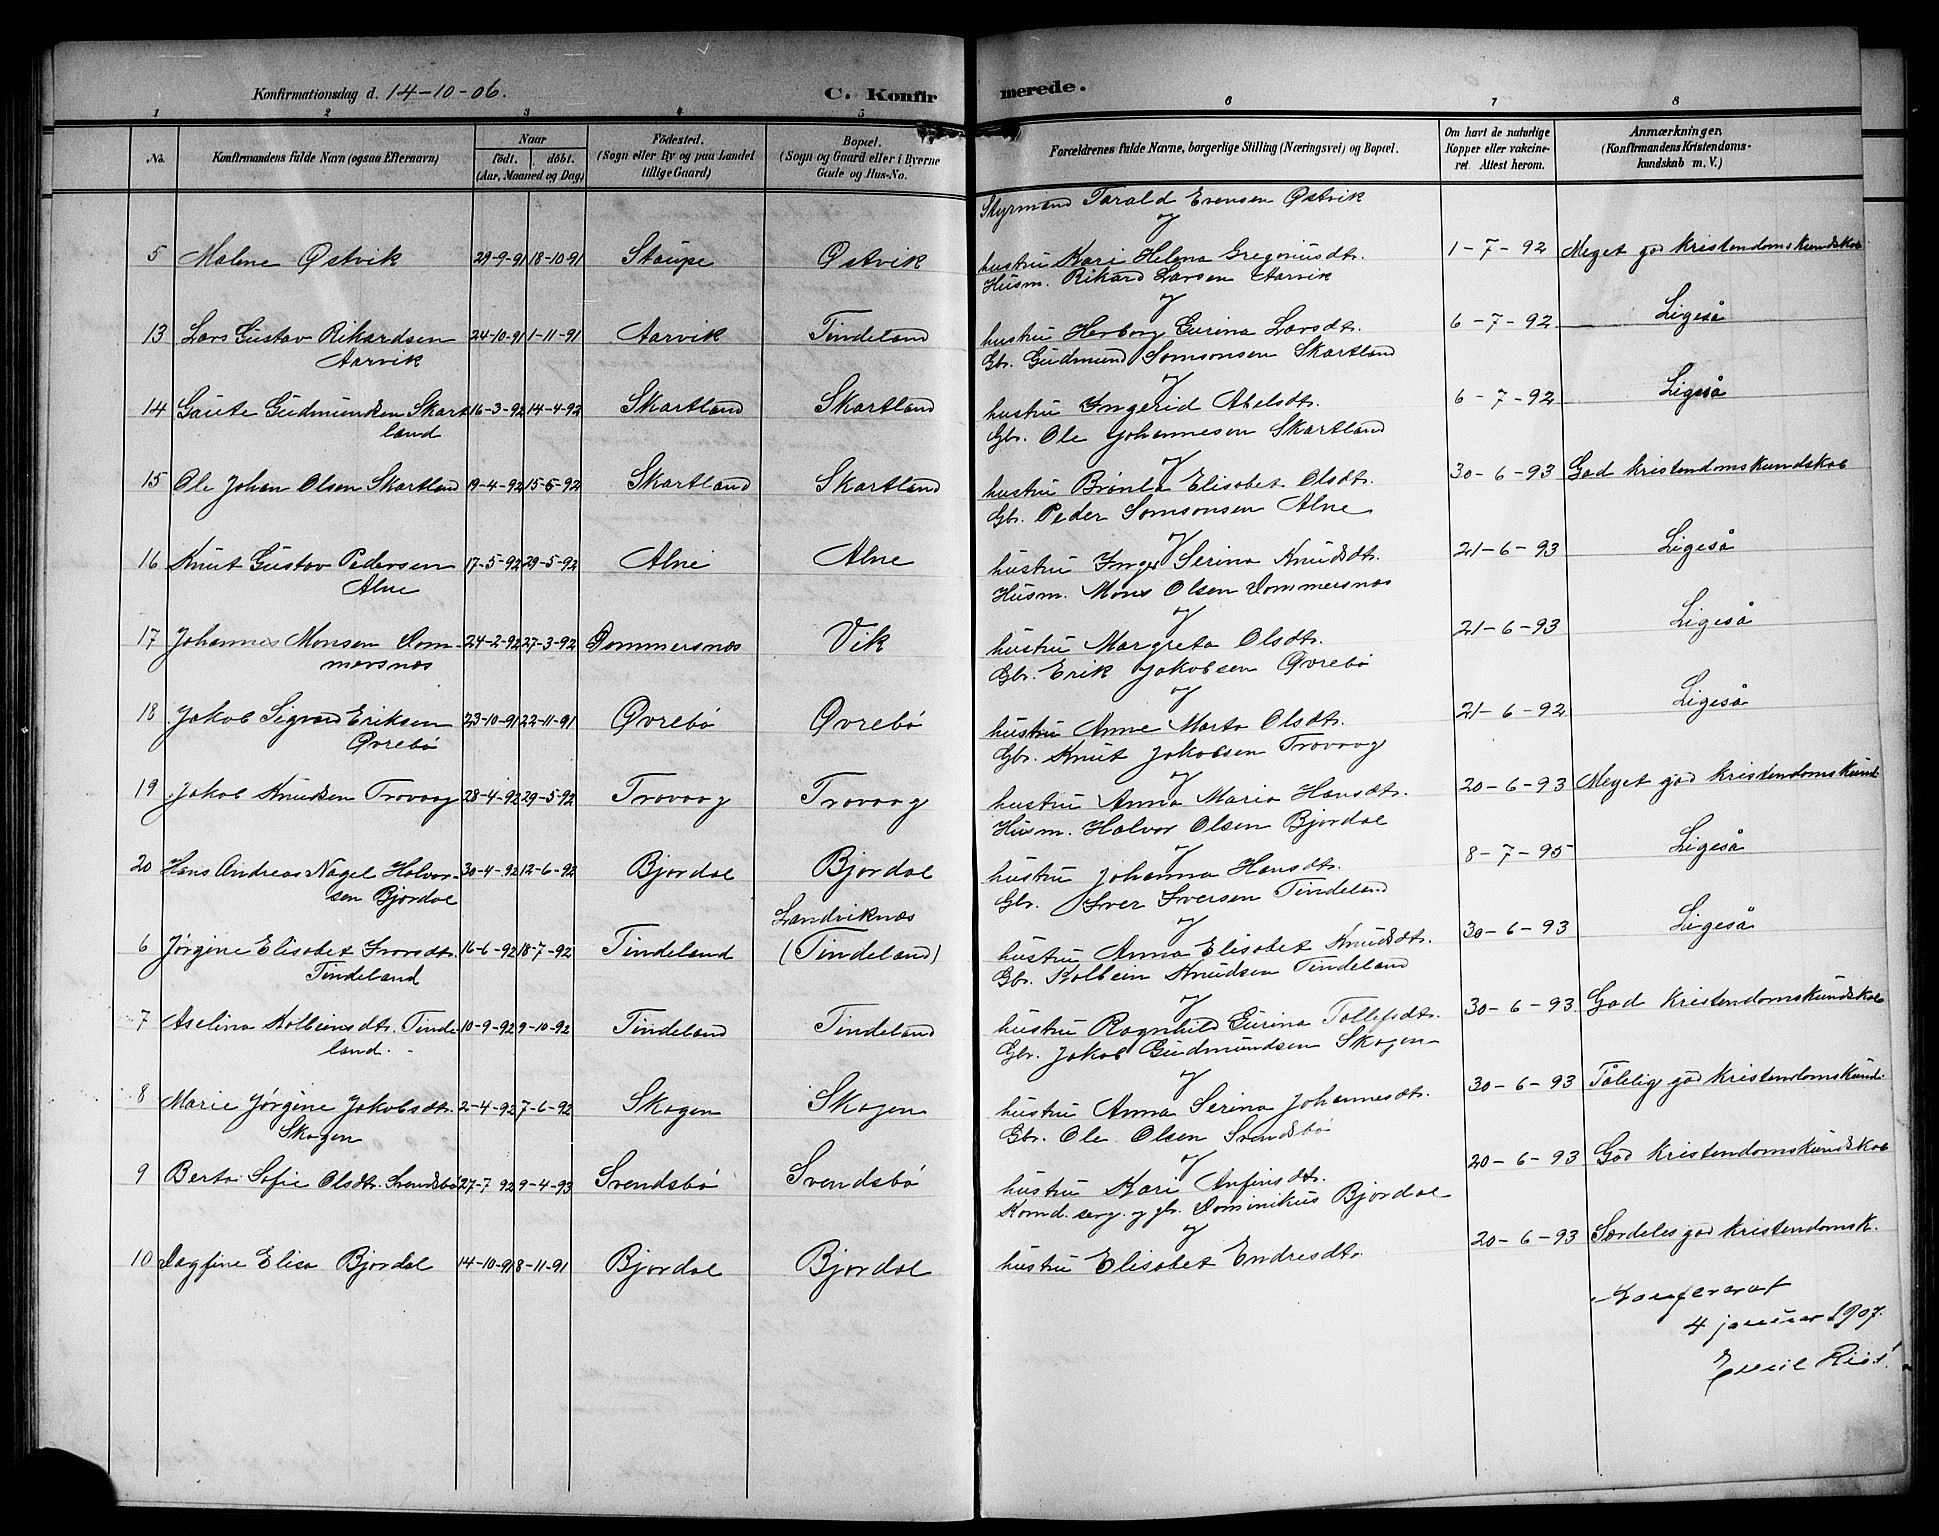 Konfirmationsdag d. 14-10-06. C. Konfirmerede.
1 2 3 4 5 6 7 8
No. Konfirmandens fulde Navn (ogsaa Efternavn) Naar født. døbt. (Aar, Maaned og Dag) Fødested. (Sogn eller By og paa Landet tillige Gaard) Bopæl. (Sogn og Gaard eller i Byerne Gade og Hus-No. Forældrenes fulde Navne, borgerlige Stilling (Næringsvei) og Bopæl. Om havt de naturlige Kopper eller vakcineret. Attest herom. Anmærkninger. (Konfirmandens Kristendomskundskab m. V.)
Styrmand Tarald Evensen Østvik
og
5 Malene Østvik 29-9-91 18-10-91 Staupe Østvik hustru Kari Helena Gregoriusdtr. 1-7-92 Meget god kristendomskundskab
Husm. Rikard Larsen Aarvik
og
13 Lars Gustav Rikardsen 24-10-91 1-11-91 Aarvik Tindeland hustru Herborg Gurina Larsdtr. 6-7-92 Ligeså
Aarvik Gbr. Gudmund Samsonsen Skartland
og
14 Gaute Gudmundsen Skart 16-3-92 14-4-92 Skartland Skartland hustru Ingerid Abelsdtr. 6-7-92 Ligeså
land Gbr. Ole Johannesen Skartland
og
15 Ole Johan Olsen Skartland 19-4-92 15-5-92 Skartland Skartland hustru Brønla Elisabet Olsdtr. 30-6-93 God kristendomskundskab
Gbr. Peder Samsonsen Alne
og
16 Knut Gustav Pedersen 17-5-92 29-5-92 Alne Alne hustru Inger Serina Knudsdtr. 21-6-93 Ligeså
Alne Husm. Mons Olsen Dommersnæs
og
17 Johannes Monsen Dom- 24-2-92 27-3-92 Dommersnæs Vik hustru Margreta Olsdtr. 21-6-93 Ligeså
mersnæs Gbr. Erik Jakobsen Øvrebø
og
18 Jakob Sigvard Eriksen 23-10-91 22-11-91 Øvrebø Øvrebø hustru Anne Marta Olsdtr. 21-6-92 Ligeså
Øvrebø Gbr. Knut Jakobsen Trovaag
og
19 Jakob Knudsen Trovaag 28-4-92 29-5-92 Trovaag Trovaag hustru Anna Maria Hansdtr. 20-6-93 Meget god kristendomskund-
Husm. Halvor Olsen Bjordal
og
20 Hans Andreas Nagel Halvor- 30-4-92 12-6-92 Bjordal Bjordal hustru Johanna Hansdtr. 8-7-95 Ligeså
sen Bjordal Gbr. Iver Iversen Tindeland
Landviknæs og
6 Jørgine Elisabet Iversdtr. 16-6-92 18-7-92 Tindeland (Tindeland) hustru Anna Elisabet Knudsdtr. 30-6-93 Ligeså
Tindeland Gbr. Kolbein Knudsen Tindeland
og
7 Aselina Kolbeinsdtr. Tinde- 10-9-92 9-10-92 Tindeland Tindeland hustru Ragnhild Gurina Tollefsdtr. 30-6-93 God kristendomskundskab
land. Gbr. Jakob Gudmundsen Skogen
og
8 Marie Jørgine Jakobsdtr. 2-4-92 7-6-92 Skogen Skogen hustru Anna Serina Johannesdtr. 30-6-93 Tålelig god kristendomskund.
Skogen Gbr. Ole Olsen Svendsbø
og
9 Berta Sofie Olsdtr. Svendsbø 27-7 92 9-4-93 Svendsbø Svendsbø hustru Kari Anfinsdtr. 20-6-93 God kristendomskundskab
Komd. serg. og gbr. Dominikus Bjordal
og
10 Dagfine Elisa Bjordal 14-10-91 8-11-91 Bjordal Bjordal hustru Elisabet Endresdtr. 20-6-93 Særdeles god kristendomsk.
Konfererat
4 januar 1907.
Emil Riis!